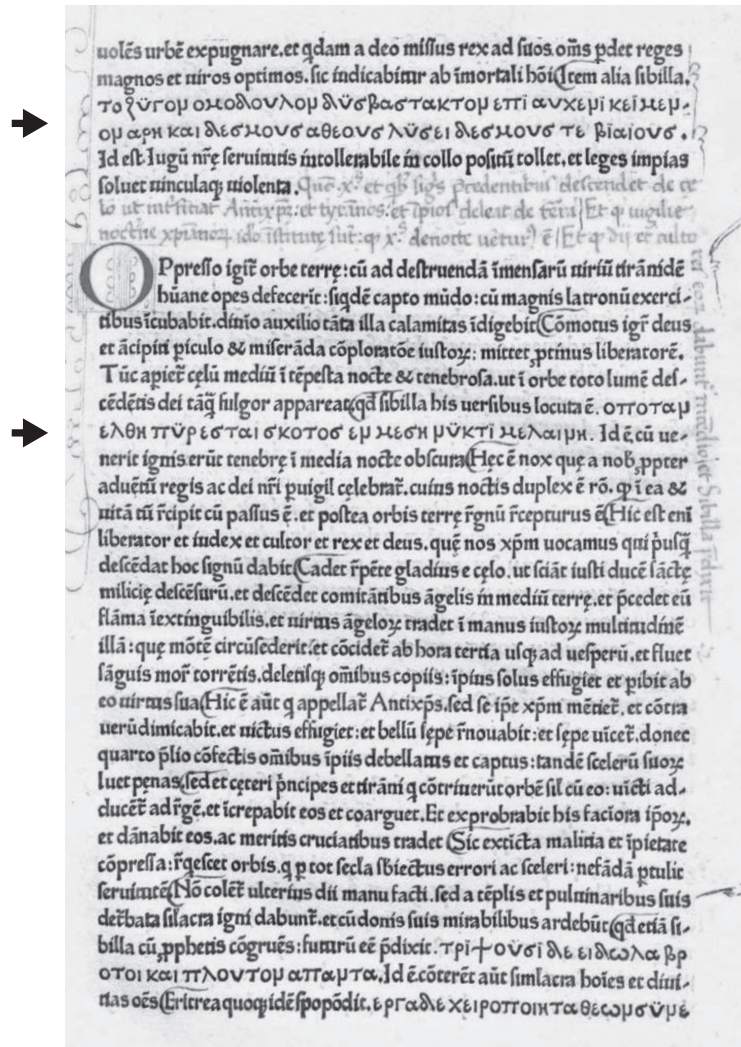 uolēs urbē expugnare. et qdam a deo missus rex ad suos. om̄s pdet reges
magnos et uiros optimos. sic iudicabitur ab īmortali hōi(Item alia sibilla.
το ζύγομ ομοδουλομ δύσβαστακτομ επι αυχεμι κείμεμ-
ομ αρη και δεσμουσ αθεουσ λύσει δεσμουσ τε βίαιουσ.
Id est Iugū nr̄e seruitutis intollerabile in collo positū tollet. et leges impias
soluet uinculaq; uiolenta.
Oppresso igit̄ orbe terrę: cū ad destruendā īmensarū uiriū tirānidē
hūane opes defecerit: siqdē capto mūdo: cū magnis latronū exerci-
tibus īcubabit. diuīo auxilio tāta illa calamitas īdigebit(Cōmotus igr̄ deus
et ācipiti piculo & miserāda cōploratōe iustoꝝ: mittet ptinus liberatorē.
Tūc apiet̄ cęlū mediū ī tēpesta nocte & tenebrosa. ut ī orbe toto lumē des-
cēdētis dei tāq̄ fulgor appareat(qd̄ sibilla his uersibus locuta ē. οπποταμ
ελθη πύρεσται σκοτοσ εμ μεση μύκτι μελαιμη. Id ē cū ue-
nerit ignis erūt tenebrę ī media nocte obscura(Hęc ē nox quę a nob̄ ppter
aduētū regis ac dei nr̄i puigil cęlebrat̄. cuius noctis duplex ē rō. q ī ea &
uitā tū r̄cipit cū passus ē. et postea orbis terrę r̄gnū r̄cepturus ē(Hic est enī
liberator et iudex et cultor et rex et deus. quē nos xp̄m uocamus qui p̄usq̄
descēdat hoc signū dabit(Cadet r̄pēte gladius e cęlo. ut sciāt iusti ducē sāctę
milicię descēsurū. et descēdet comitātibus āgelis in mediū terrę. et p̄cedet eū
flāma īextinguibilis. et uirtus āgeloꝝ tradet ī manus iustoꝝ multitudinē
illā: quę mōtē circūsederit: et cōcidet̄ ab hora tertia usq; ad uesperū. et fluet
sāguis mor̄ torrētis. deletisq; om̄ibus copiis: īpius solus effugiet et pibit ab
eo uirtus sua(Hic ē aūt q appellat̄ Antixp̄s. sed se ip̄e xp̄m mētiet̄. et cōtra
uerū dimicabit. et uictus effugiet: et bellū sępe r̄nouabit: et sępe uīcet̄. donec
quarto p̄lio cōfectis om̄ibus īpiis debellatus et captus: tandē scelerū suoꝝ
luet penas(sed et cęteri p̄ncipes et tirāni q cōtriuerūt orbē sil cū eo: uīcti ad-
ducēt̄ ad r̄gē. et īcrepabit eos et coarguet. Et exprobrabit his faciora ip̄oꝝ.
et dānabit eos. ac meritis cruciatibus tradet (Sic extīcta malitia et īpietate
cōpressa: r̄qescet orbis. q p tot secla sbiectus errori ac sceleri: nefādā ptulit
seruitutē(Nō colēt̄ ulterius dii manu facti. sed a tēplis et puluinaribus suis
det̄bata sīlacra igni dabunt̄. et cū donis suis mirabilibus ardebūt(qd̄ etiā si-
billa cū pphetis cōgruēs: futurū eē p̄dixit. τρί+ούσί δε ειδωλα βρ
οτοι και πλουτομ απαμτα. Id ē. cōterēt aūt simlacra hoīes et diui-
tias oēs(Eritrea quoq; idē spopōdit. εργαδε χειροποιητα θεωμσύμε